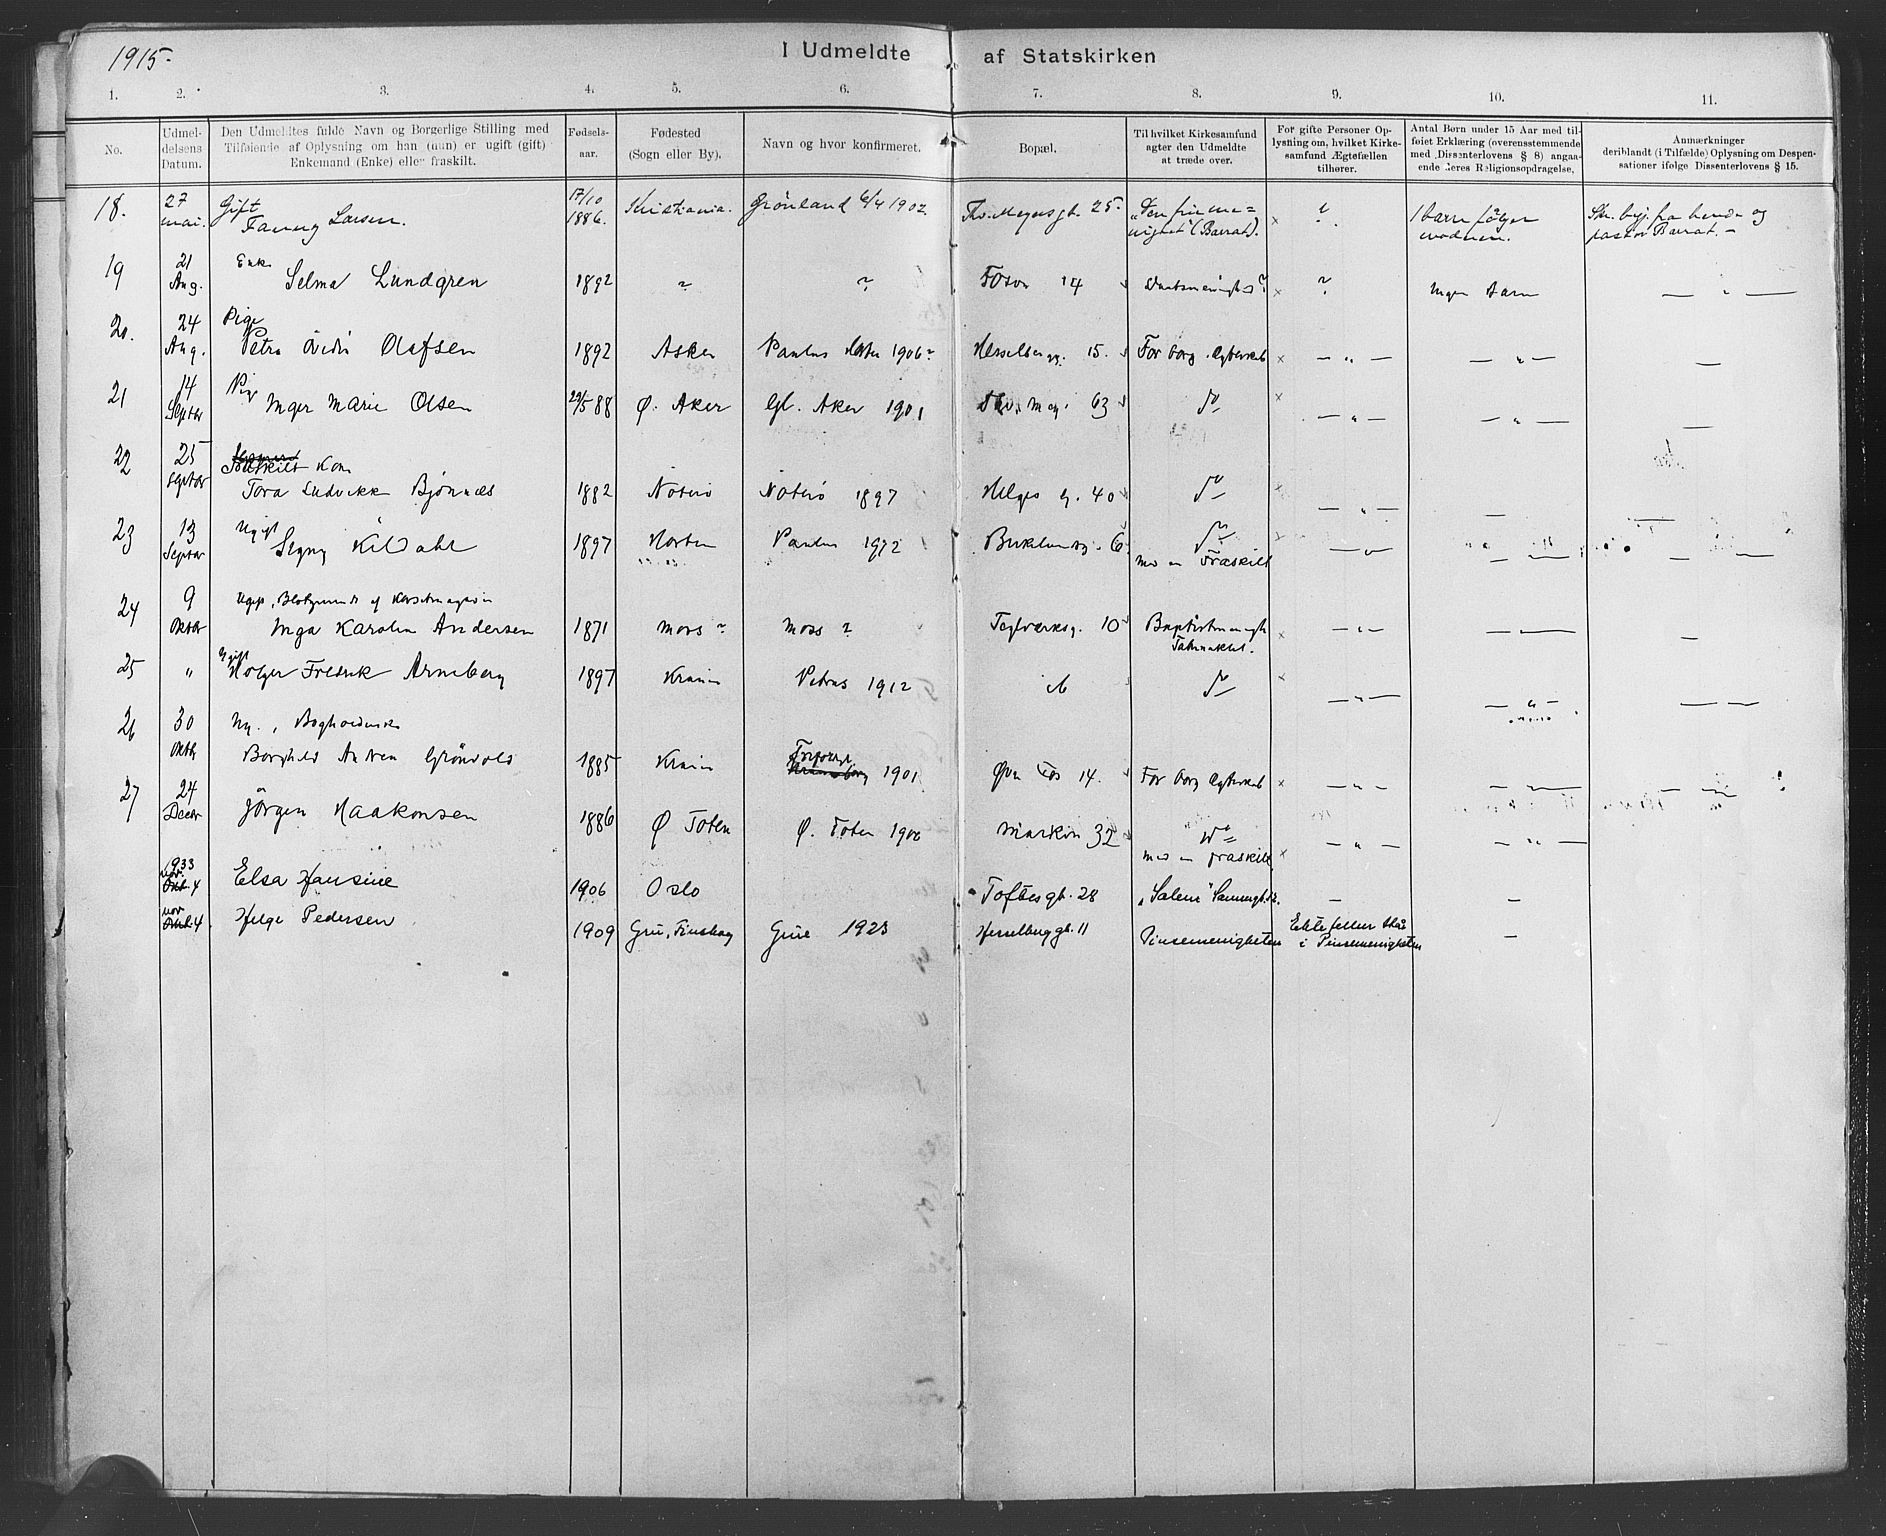 1915.
I Udmeldte af Statskirken
1. 2. 3. 4. 5. 6. 7. 8. 9. 10. 11.
No.
Udmel-
delsens
Datum.
Den Udmeldtes fulde Navn og Borgerlige Stilling med
Tilføiende af Oplysning om han (hun) er ugift (gift)
Enkemand (Enke) eller fraskilt.
Fødsels-
aar.
Fødested
(Sogn eller By).
Navn og hvor konfirmeret.
Bopæl.
Til hvilket Kirkesamfund
agter den Udmeldte
at træde over.
For gifte Personer Op-
lysning om, hvilket Kirke-
samfund Ægtefællen
tilhører.
Antal Børn under 15 Aar med til-
føiet Erklæring (overensstemmende
med Dissenterlovens § 8) angaa-
ende deres Religionsopdragelse.
Anmærkninger
deriblandt (i Tilfælde) Oplysning om Despen-
sationer ifølge Dissenterlovens § 15.
18. 27 mai. Gift
Fanny Larsen. 17/10 1886. Kristiania. Grönland 6/4 1902. Thv. Meyersgt. 25. "Den frie me=
nighet" (Barrat). × ? 1 barn följer
moderen. Skr. bej. fra hende og
pastor Barrat. —
19 21 Aug. Enke
Selma Lundgren 1892 ~ ~ Fossv 14 ? × ? Ingen barn — " —
20. 24 Aug. Pige
Petra Olafsen 1892 Asker Paulus 1906 Hesselbergg. 15. For borg. Egteskab × — " — — " — —
21 14 Septbr Pige
Inger Marie Olsen 29/5 88 Ø. Aker Gl. Aker 1901 Thv. Mey. 63 do × — " — — " — —
22 25 Septbr Fraskilt Kone
Tora Ludvikke Bjønnes 1882 Nøterö Nøterö 1897 Helges g. 40 do × — " — — —
23 13 Septbr Ugift
Signy Kildahl 1897 Horten Paulus 1912 6 do
med en Fraskilt × — " — — — — —
24 9 Oktbr Ugift,
Inga Karolin Andersen 1871 Moss ? Moss ? Teglverksg. 10 Baptistmenigh
Tabernaklet. × — " — — — —
25 " Ugift
Holger Fredrik Arneberg 1897 Krania Petrus 1912 do × — " — — " — — —
26 30 Oktb Ug., Bogholderske
Borghild Andrea Grönvold 1885 Krania 1901 Øvre Fos 14. For borg Egteskab × — " — — — — —
27 24 Decbr Jörgen Haakonsen 1886 Ø Toten Ø. Toten 1900 Markvn 32 do
med en fraskilt × — " — — " — — —
1933
nov. Okt. 4 Elsa Hansine 1906 Oslo Toftesgt. 28 "Salem" — —
nov Okt. 4 Helge Pedersen 1909 Gru, Finskog Grue 1923 Hesselberggt. 11 Pinsemenigheten Ektefellen står
i Pinsemenigheten —